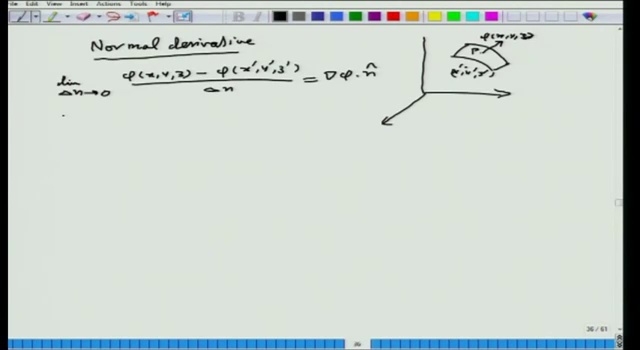 File Edit View Insert Actions Tools Help
Normal derivative
lim Δn→0 φ(x,y,z) - φ(x',y',z') / Δn = ∇φ.n̂
φ(x,y,z)
P
(x',y',z')
36/61
36